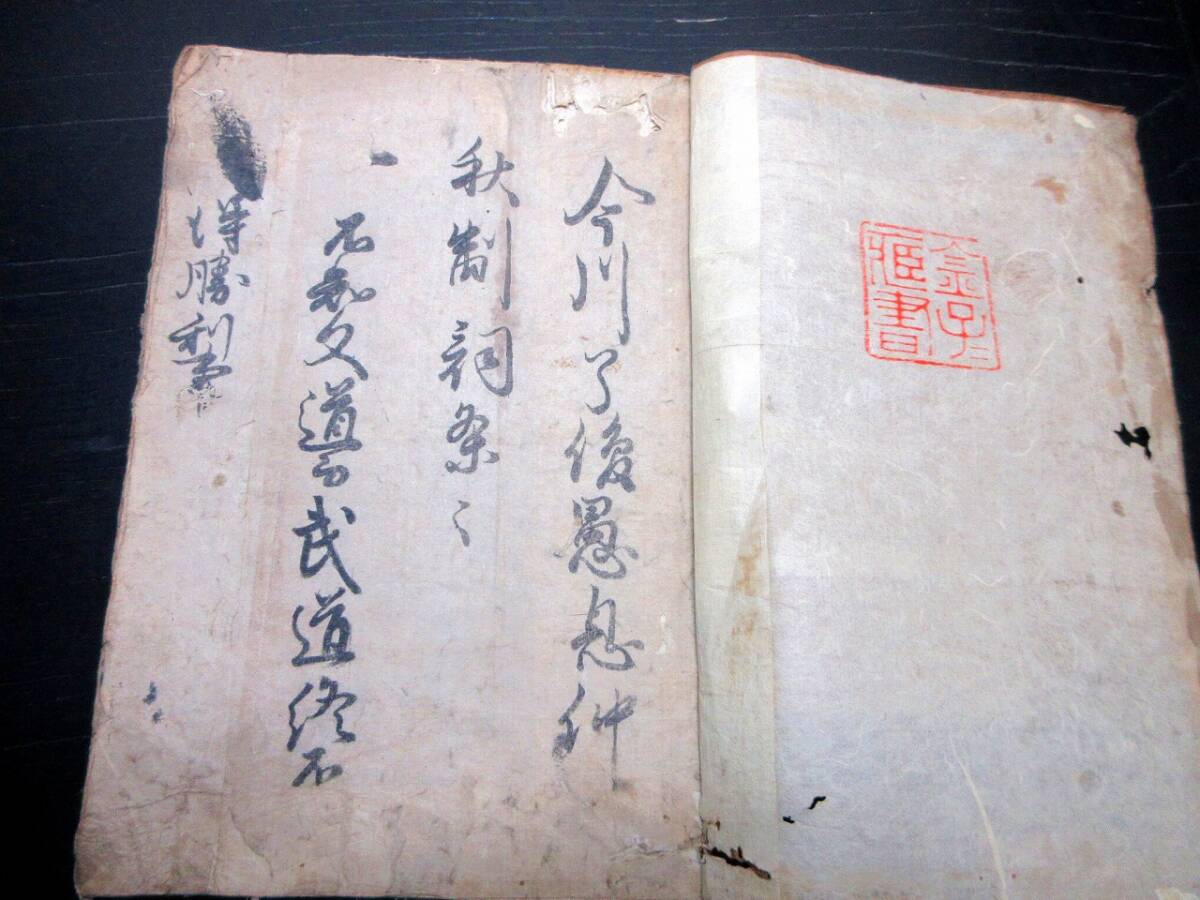 今川了俊愚息仲
秋制詞条々
一 不知文道而武道終不
得勝利事